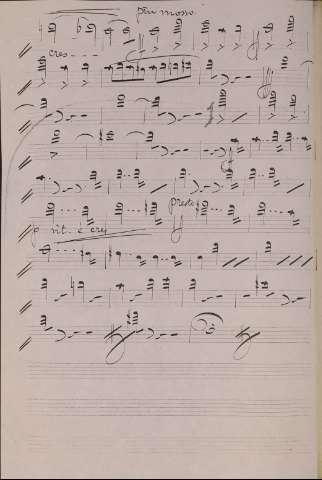 più mosso
cres - - -
presto
rit. e cres